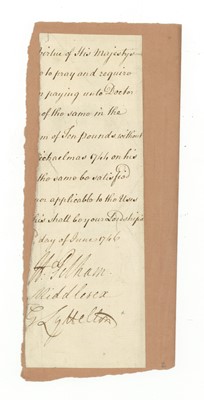 Virtue of His Majestys
to pray and require
n paying unto Doctor
of the same in the
m of Ten pounds without
Michaelmas 1744 on his
the same be satisfied
ver applicable to the Uses
his shall be your Lordship's
day of June 1746
H. Pelham
Middlesex
G Lyttelton